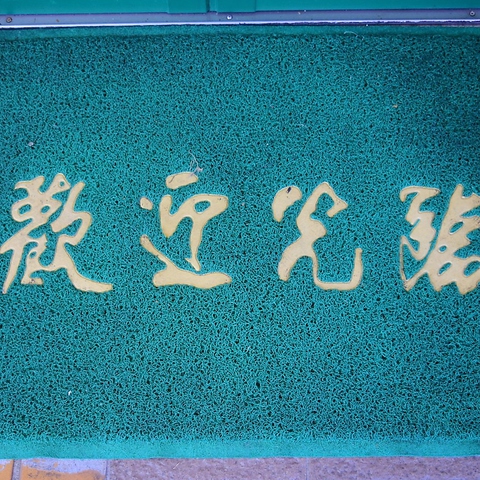 歡迎光臨